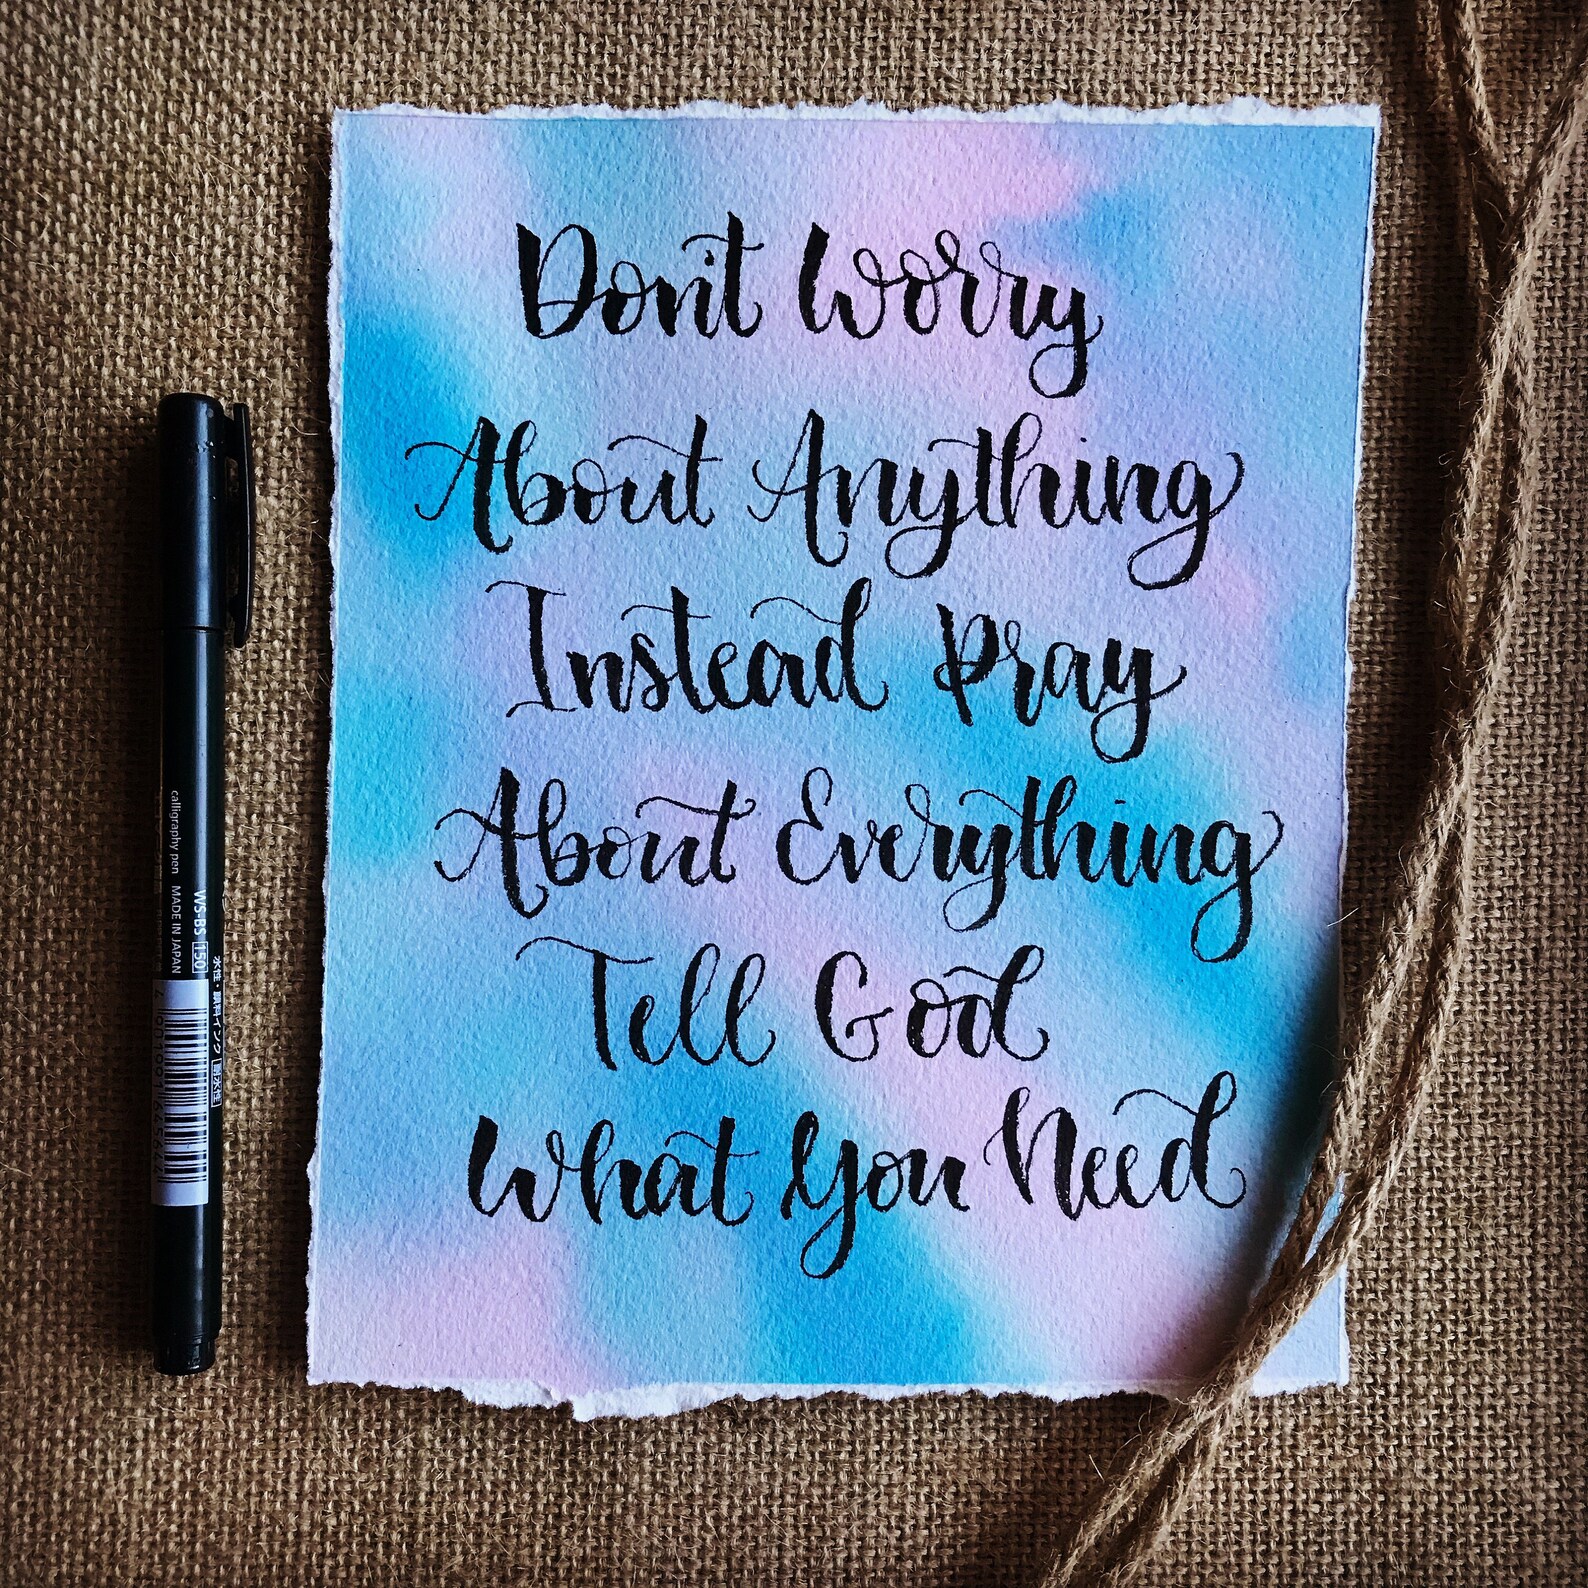 Don't Worry
About Anything
Instead Pray
About Everything
Tell God
What You Need
calligraphy pen MADE IN JAPAN
WS-BS 150
水性・顔料インク 耐水性